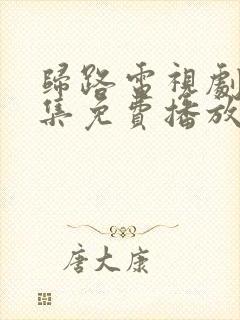 歸路電視劇
集免費播放
唐大康